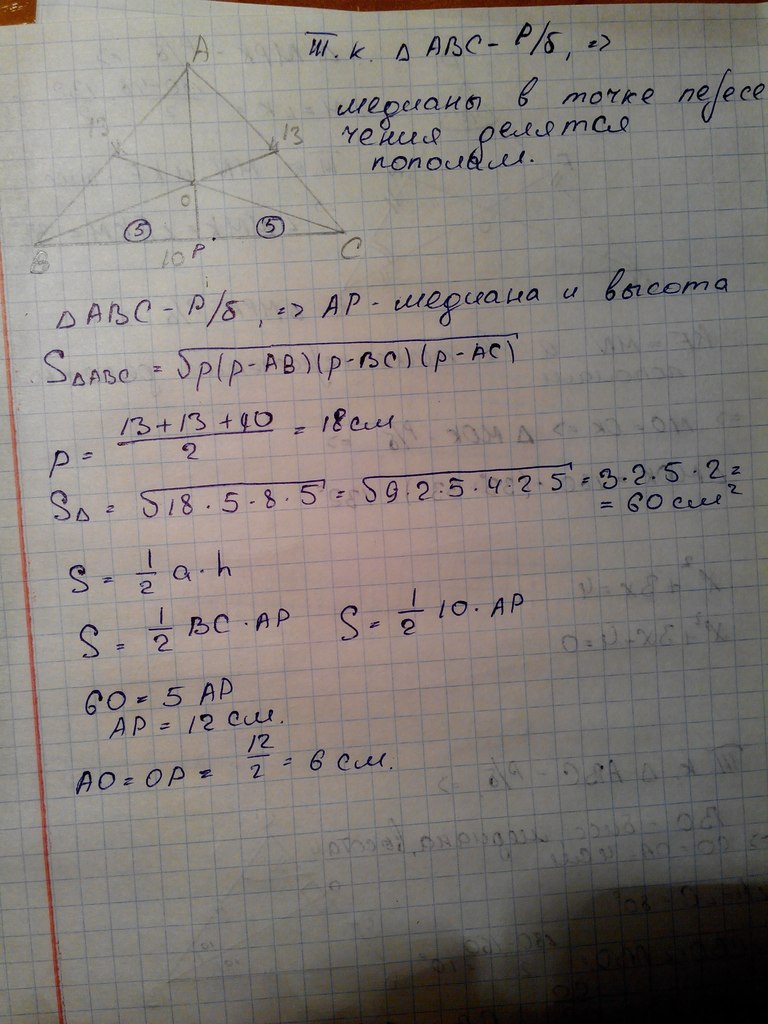 A
Т.к. △ABC - р/б, =>
медианы в точке пересе
чения делятся
пополам.
13
13
O
5
5
B
10
P
C
△ABC - р/б, => AP - медиана и высота
S△ABC = √p(p-AB)(p-BC)(p-AC)
p = (13+13+10)/2 = 18см
S△ = √18·5·8·5 = √9·2·5·4·2·5 = 3·2·5·2=
= 60 см²
S = 1/2 a·h
S = 1/2 BC·AP S = 1/2 10·AP
60 = 5 AP
AP = 12 см.
AO = OP = 12/2 = 6 см.